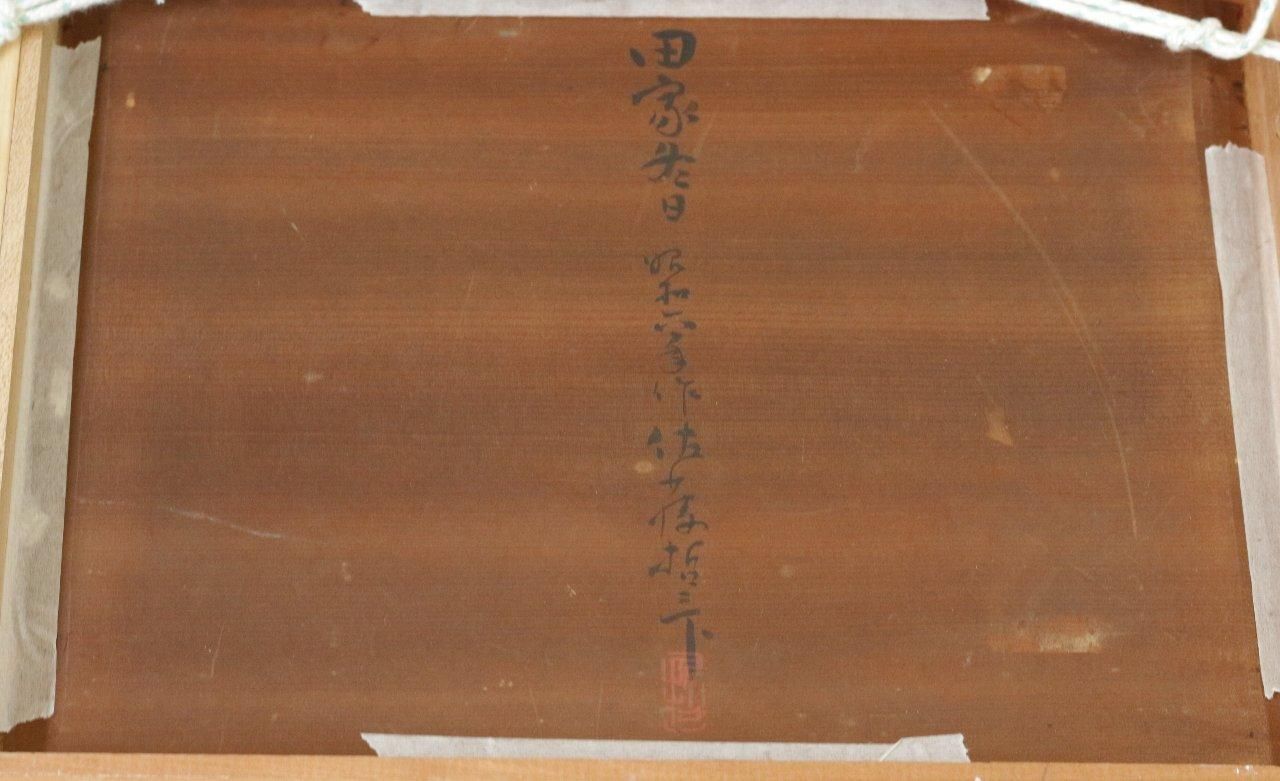 田家冬日 昭和六年作 佐藤哲三